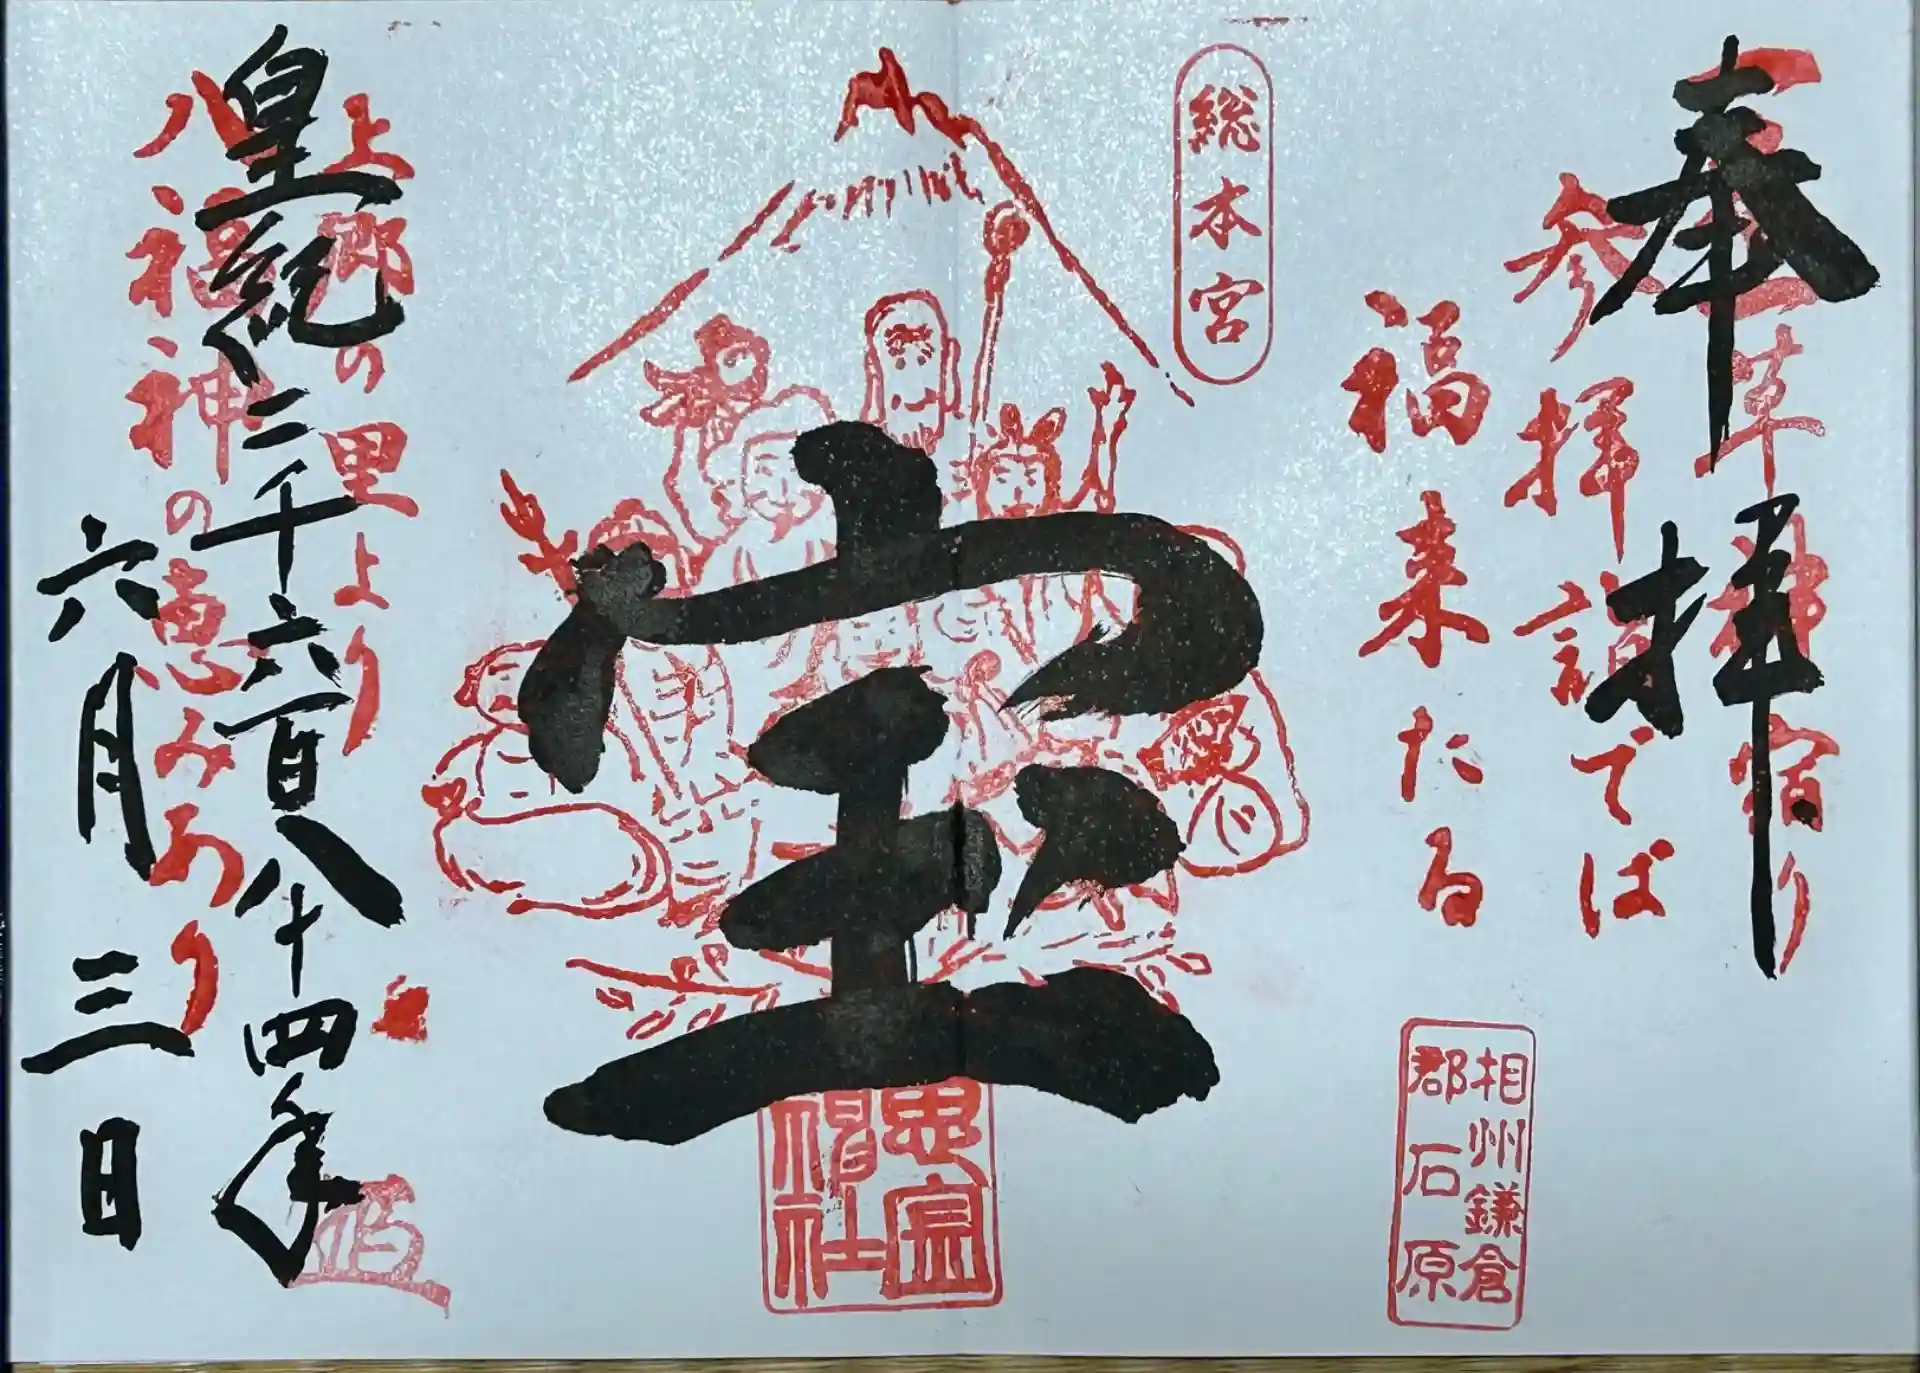 奉拝
草
神宿り
参拝詣でば
福来たる
総本宮
相州鎌倉
郡石原
宝
思金
神社
上郷の里より
八福神の恵みあり
皇紀二千六百八十四年
六月三日